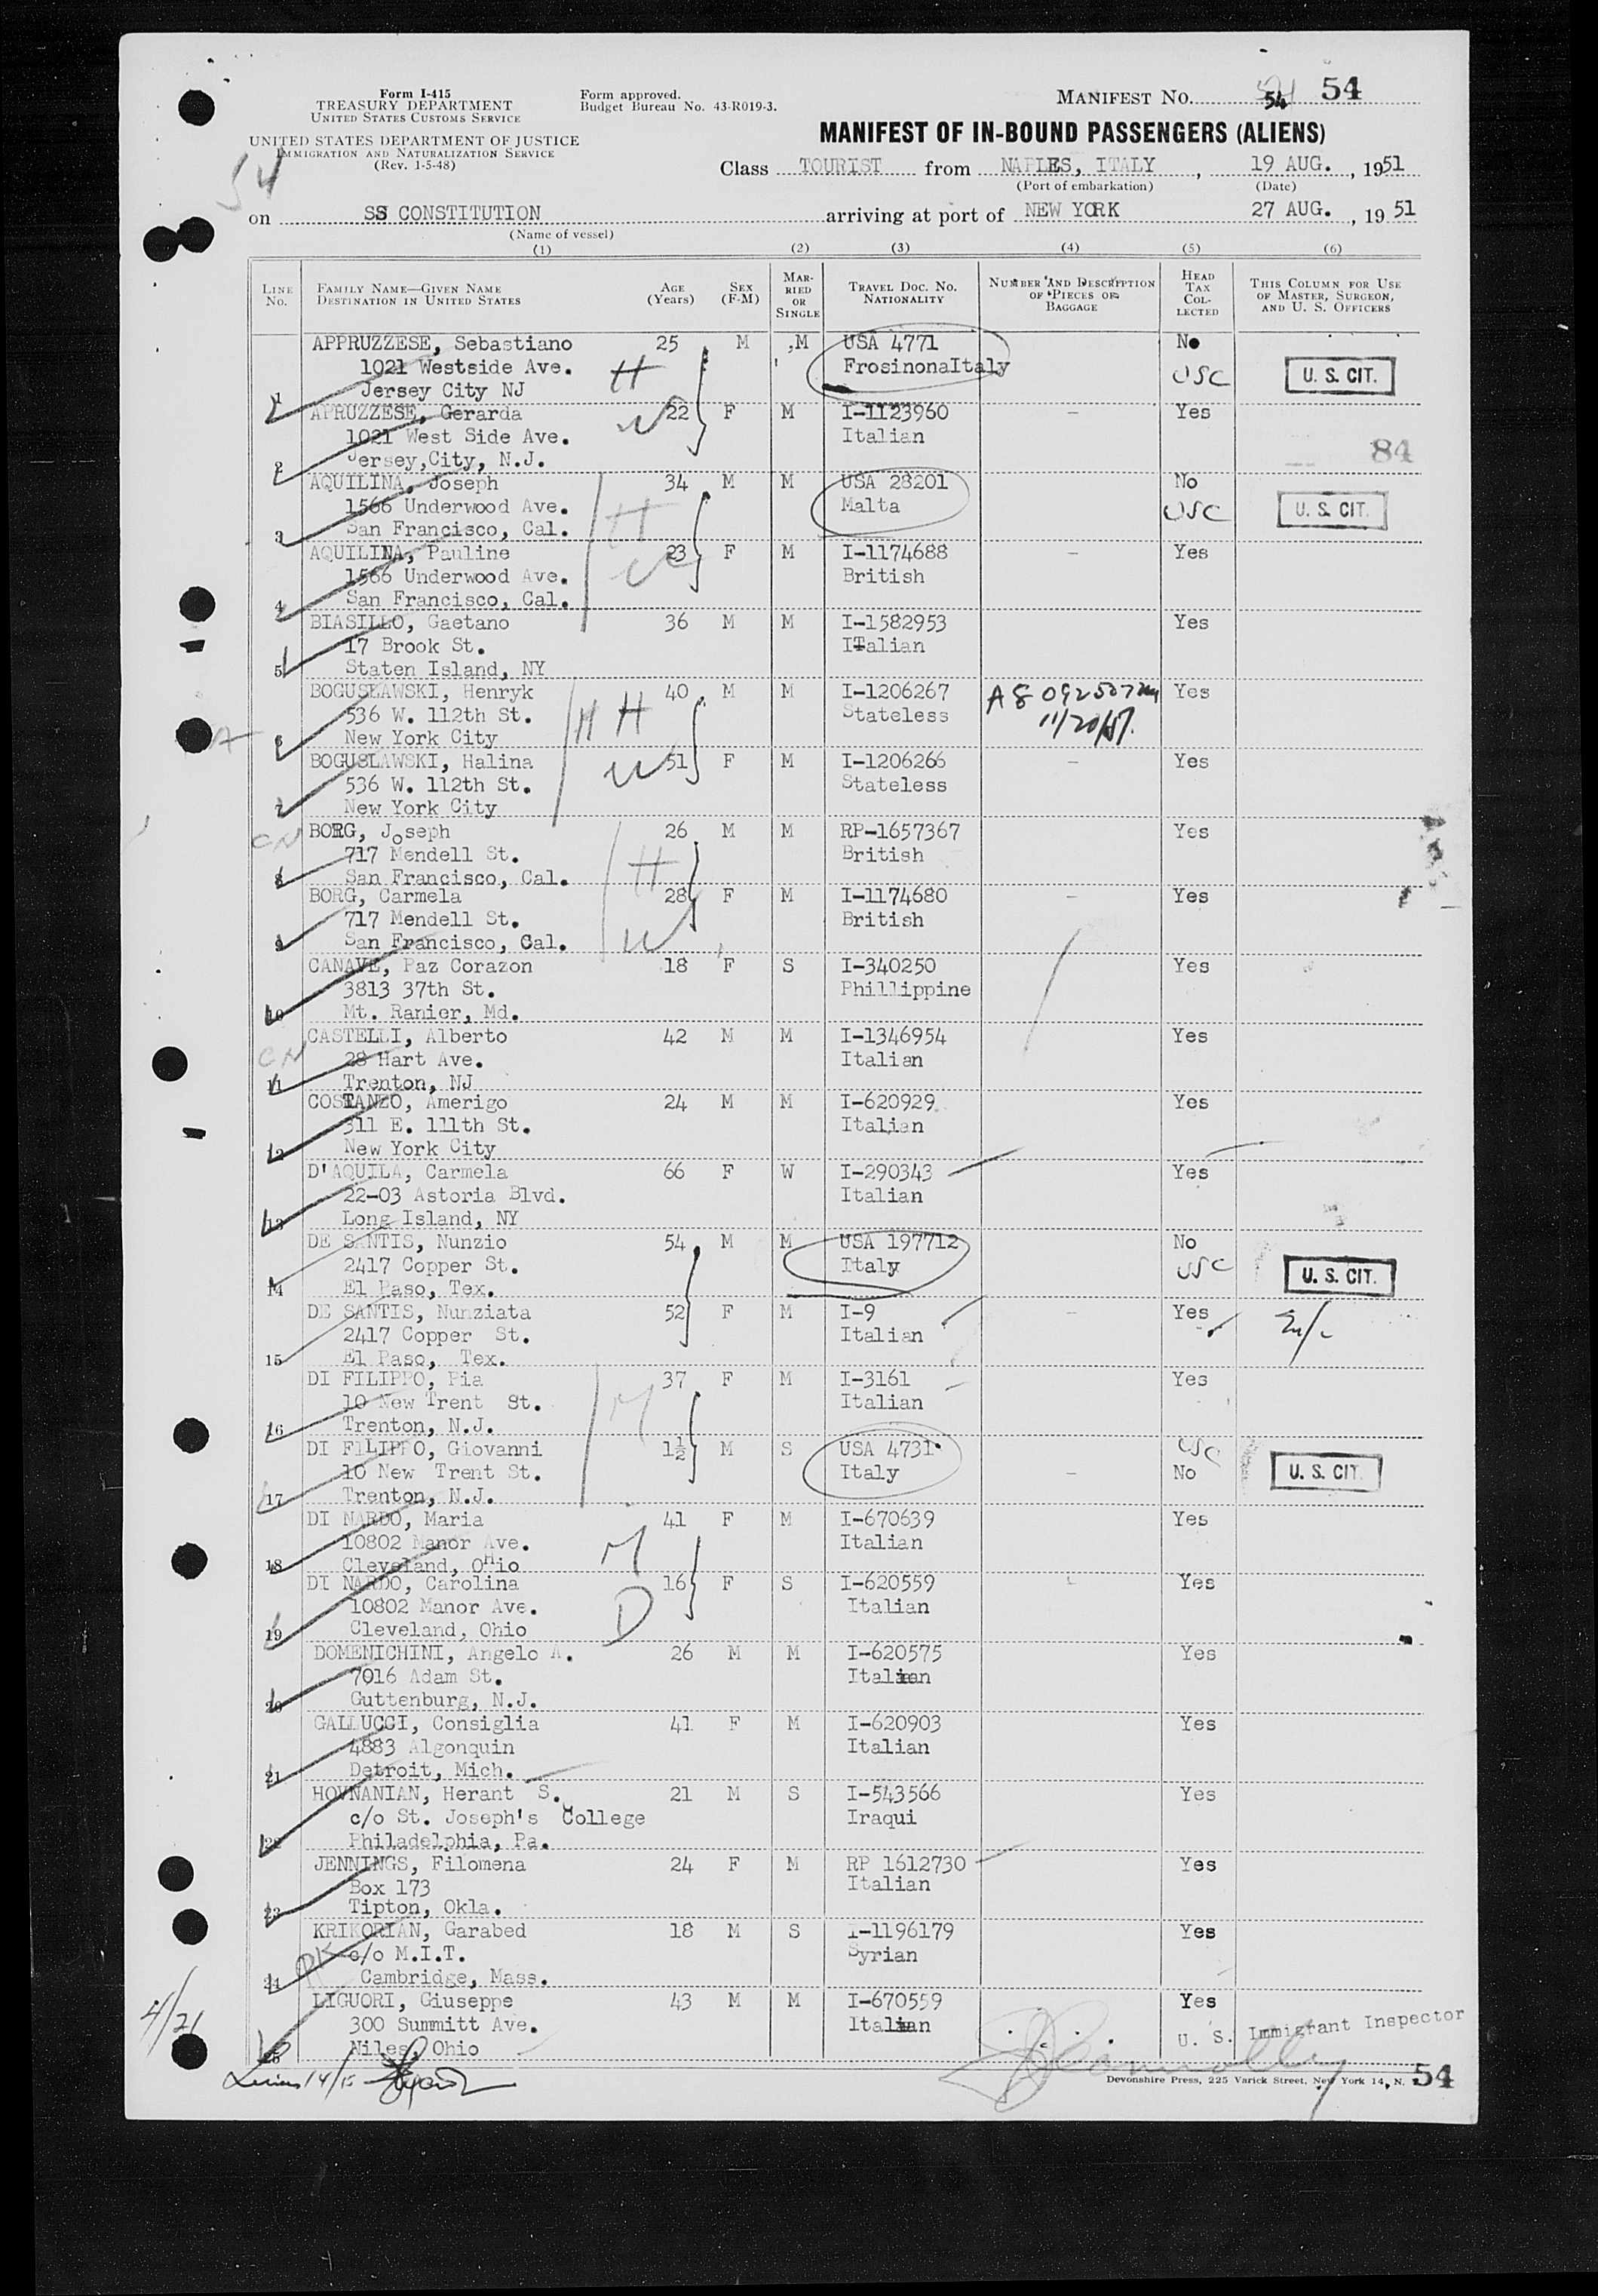 Form I-415
TREASURY DEPARTMENT
UNITED STATES CUSTOMS SERVICE
UNITED STATES DEPARTMENT OF JUSTICE
IMMIGRATION AND NATURALIZATION SERVICE
(Rev. 1-5-48)
54
Form approved.
Budget Bureau No. 43-R019-3.
MANIFEST NO. 54 54
MANIFEST OF IN-BOUND PASSENGERS (ALIENS)
Class TOURIST from NAPLES, ITALY, 19 AUG., 1951
(Port of embarkation) (Date)
on SS CONSTITUTION arriving at port of NEW YORK 27 AUG., 19 51
(Name of vessel)
(1) (2) (3) (4) (5) (6)
LINE No. FAMILY NAME—GIVEN NAME DESTINATION IN UNITED STATES AGE (Years) SEX (F-M) MARRIED OR SINGLE TRAVEL DOC. NO. NATIONALITY NUMBER AND DESCRIPTION OF PIECES OF BAGGAGE HEAD TAX COLLECTED THIS COLUMN FOR USE OF MASTER, SURGEON, AND U. S. OFFICERS
APPRUZZESE, Sebastiano 25 M M USA 4771 No
1021 Westside Ave. H FrosinonaItaly USC U. S. CIT.
1 Jersey City NJ
APRUZZESE, Gerarda W 22 F M I-1123960 – Yes
1021 West Side Ave. Italian
2 Jersey,City, N.J. 84
AQUILINA, Joseph 34 M M USA 28201 No
1566 Underwood Ave. H Malta USC U. S. CIT.
3 San Francisco, Cal.
AQUILINA, Pauline 23 F M I-1174688 – Yes
1566 Underwood Ave. W British
4 San Francisco, Cal.
BIASILLO, Gaetano 36 M M I-1582953 Yes
17 Brook St. ITalian
5 Staten Island, NY
BOGUSLAWSKI, Henryk 40 M M I-1206267 Yes
536 W. 112th St. H H Stateless 11/20/57.
6 New York City
BOGUSLAWSKI, Halina W 51 F M I-1206266 – Yes
536 W. 112th St. Stateless
7 New York City
CN BORG, Joseph 26 M M RP-1657367 Yes
717 Mendell St. H British
8 San Francisco, Cal.
BORG, Carmela 28 F M I-1174680 – Yes
717 Mendell St. W British
9 San Francisco, Cal.
CANAVE, Paz Corazon 18 F S I-340250 Yes
3813 37th St. Phillippine
10 Mt. Ranier, Md.
CASTELLI, Alberto 42 M M I-1346954 Yes
CN 28 Hart Ave. Italian
11 Trenton, NJ
COSTANZO, Amerigo 24 M M I-620929 Yes
311 E. 111th St. Italian
12 New York City
D'AQUILA, Carmela 66 F W I-290343 Yes
22-03 Astoria Blvd. Italian
13 Long Island, NY
DE SANTIS, Nunzio 54 M M USA 197712 No
2417 Copper St. Italy USC U. S. CIT.
14 El Paso, Tex.
DE SANTIS, Nunziata 52 F M I-9 – Yes
2417 Copper St. Italian
15 El Paso, Tex.
DI FILIPPO, Pia 37 F M I-3161 Yes
10 New Trent St. M Italian
16 Trenton, N.J.
DI FILIPPO, Giovanni 1½ M S USA 4731 USC
10 New Trent St. Italy – No U. S. CIT.
17 Trenton, N.J.
DI NARDO, Maria 41 F M I-670639 Yes
10802 Manor Ave. M Italian
18 Cleveland, OHio
DI NARDO, Carolina 16 F S I-620559 Yes
10802 Manor Ave. D Italian
19 Cleveland, Ohio
DOMENICHINI, Angelo A. 26 M M I-620575 Yes
7016 Adam St. Italian
20 Guttenburg, N.J.
GALLUCCI, Consiglia 41 F M I-620903 Yes
4883 Algonquin Italian
21 Detroit, Mich.
HOVNANIAN, Herant S. 21 M S I-543566 Yes
c/o St. Joseph's College Iraqui
22 Philadelphia, Pa.
JENNINGS, Filomena 24 F M RP 1612730 Yes
Box 173 Italian
23 Tipton, Okla.
KRIKORIAN, Garabed 18 M S I-1196179 Yes
c/o M.I.T. Syrian
24 Cambridge, Mass.
LIGUORI, Giuseppe 43 M M I-670559 Yes
4/21 300 Summitt Ave. Italian U. S. Immigrant Inspector
25 Niles, Ohio
Devonshire Press, 225 Varick Street, New York 14, N. 54